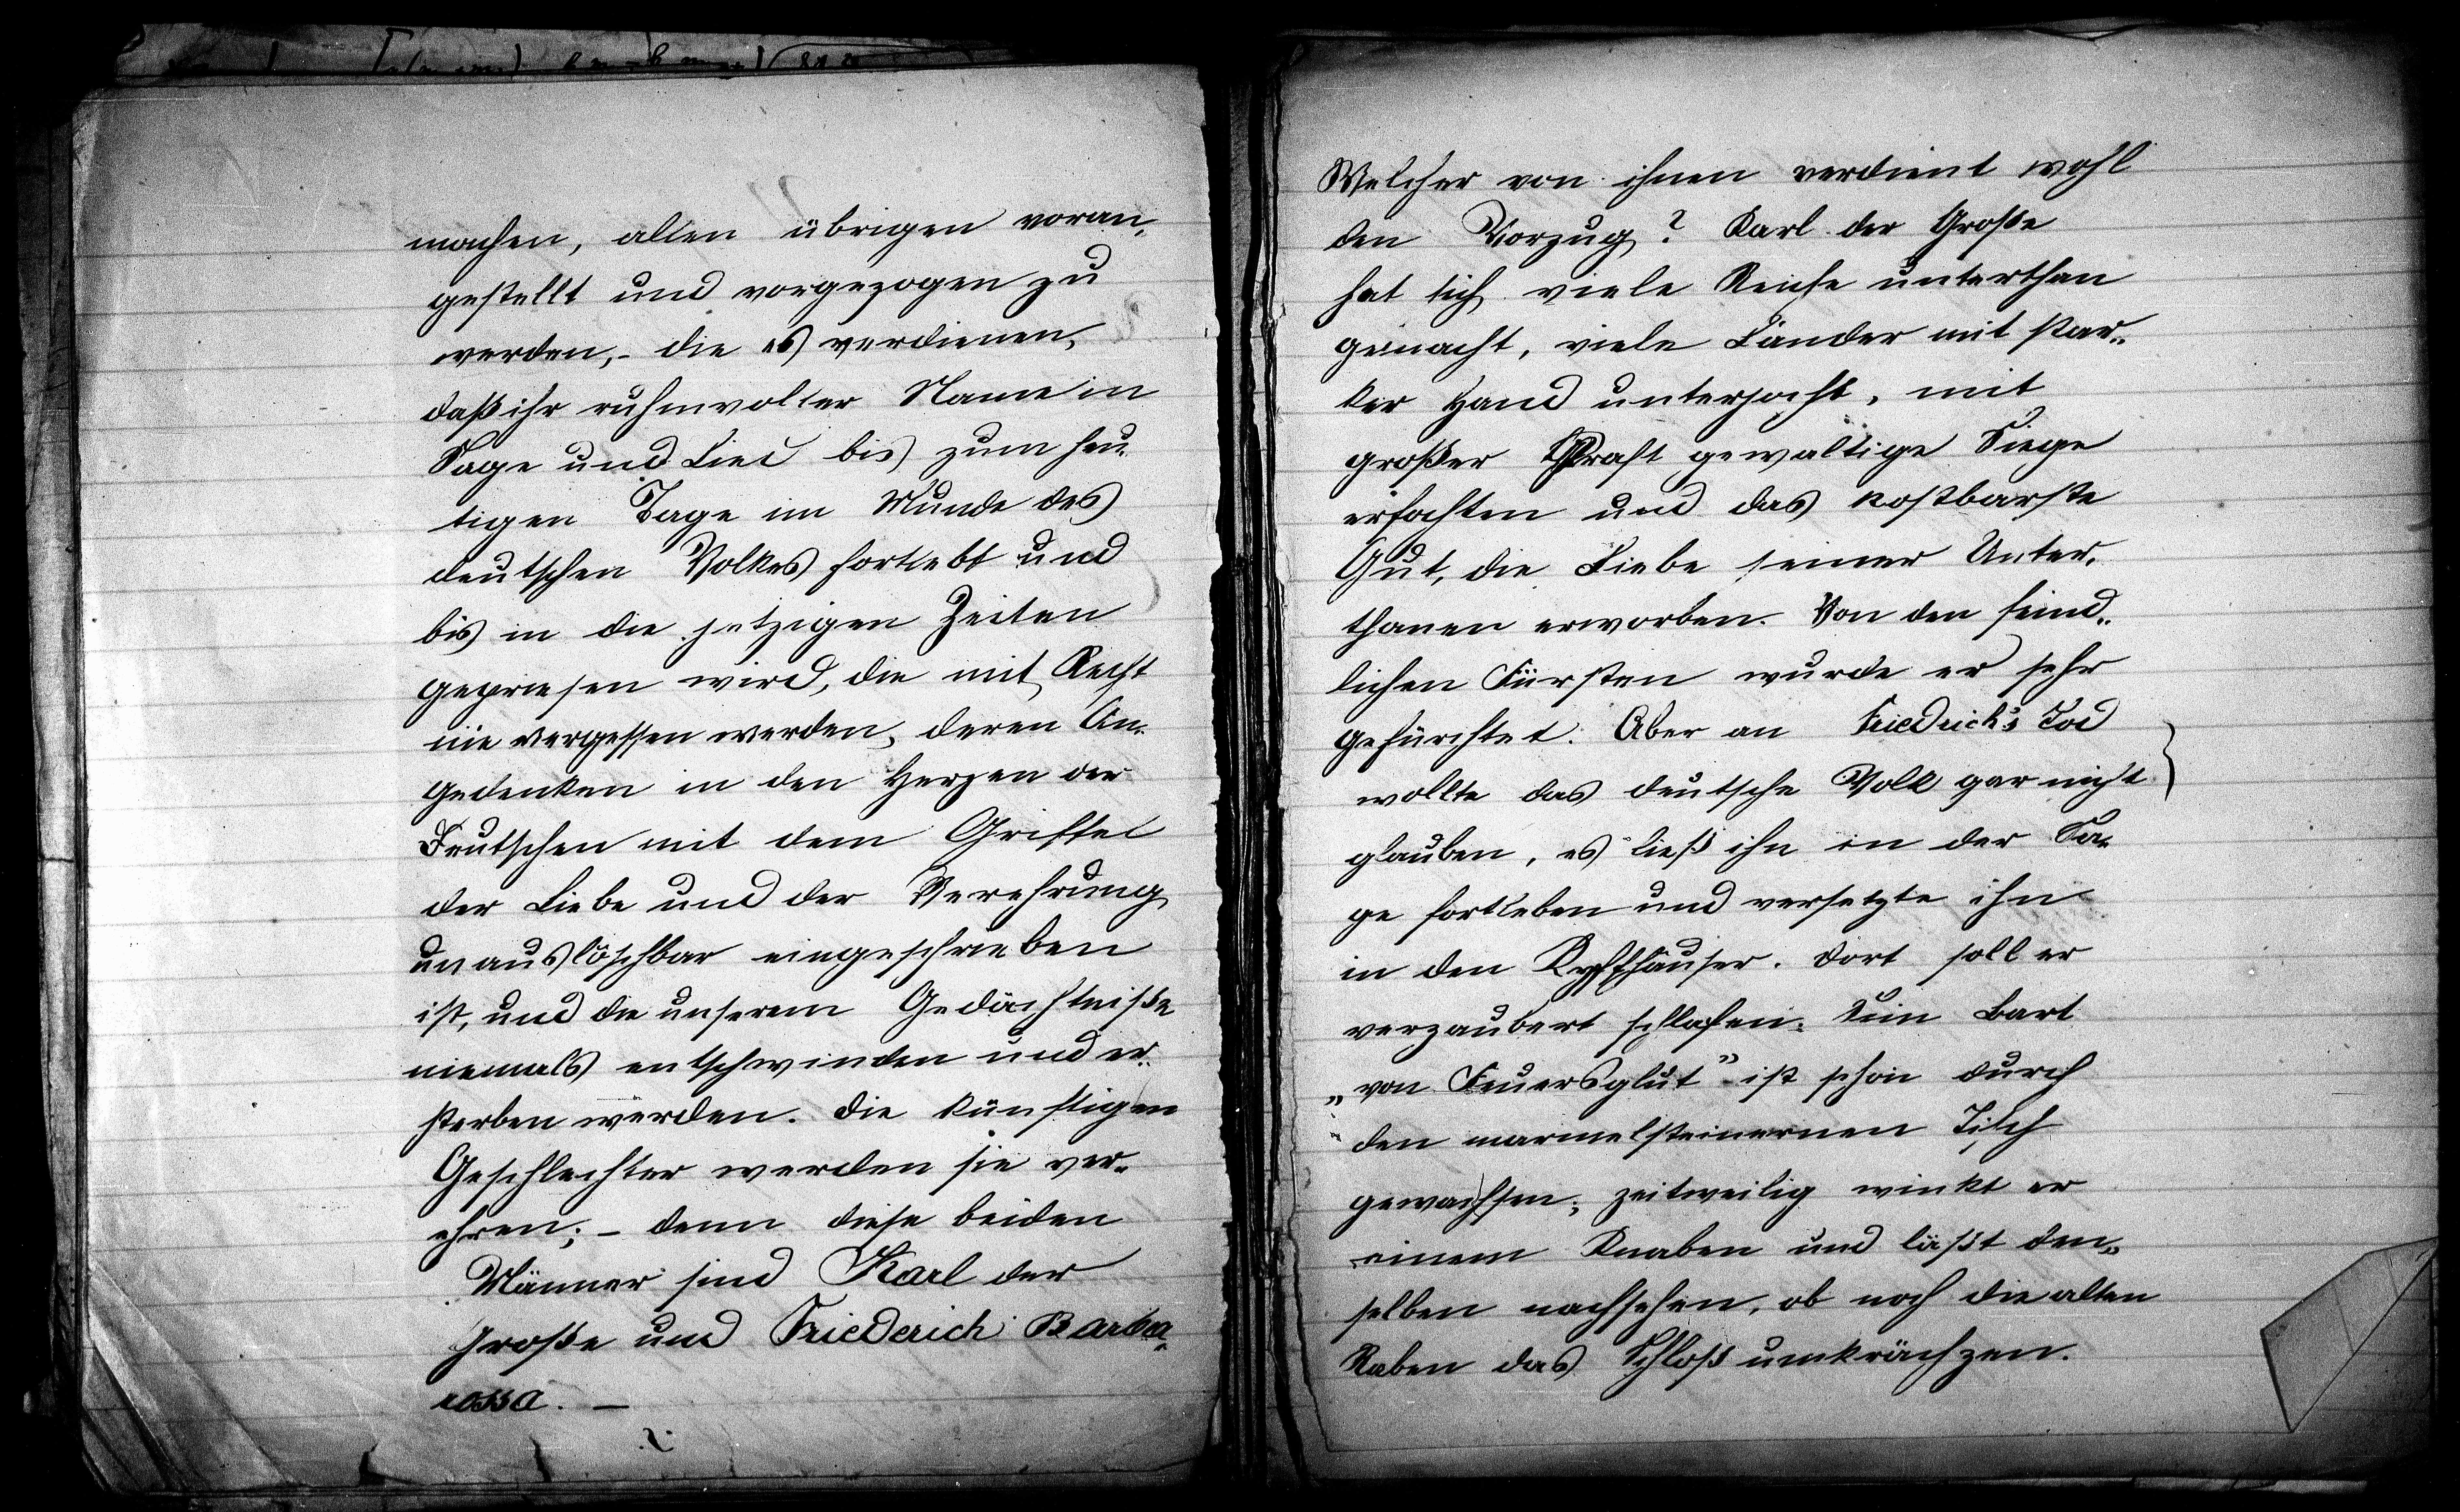 machen, allen übrigen voran-
gestellt und vorgezogen zu
werden, - die es verdienen,
daß ihr ruhmvoller Name in
Sage und Lied bis zum heu-
tigen Tage im Munde des
deutschen Volkes fortlebt und
bis in die jetzigen Zeiten
gepriesen wird, die mit Recht
nie vergessen werden, deren An-
gedenken in den Herzen der
Deutschen mit dem Griffel
der Liebe und der Verehrung
unauslöschbar eingeschrieben
ist, und die unserem Gedächtniße
niemals entschwinden und er-
sterben werden. Die künftigen
Geschlechter werden sie ver-
ehren; - denn diese beiden
Männer sind Karl der
Große und Friederich Barba-
rossa. —
Welcher von ihnen verdient wohl
den Vorzug? Karl der Große
hat sich viele Reiche unterthan
gemacht, viele Länder mit star-
ker Hand unterjocht, mit
großer Kraft gewaltige Siege
erfochten und das kostbarste
Gut, die Liebe seiner Unter-
thanen erworben. Von den feind-
lichen Fürsten wurde er sehr
gefürchtet. Aber an Friedrich's Tod
wollte das deutsche Volk gar nicht
glauben, es ließ ihn in der Sa-
ge fortleben und versetzte ihn
in den Kyffhäuser. Dort soll er
verzaubert schlafen. Sein Bart
„von Feuersglut" ist schon durch
den marmelsteinernen Tisch
gewachsen; zeitweilig winkt er
einem Knaben und läßt den-
selben nachsehen, ob noch die alten
Raben das Schloß umkrächzen.